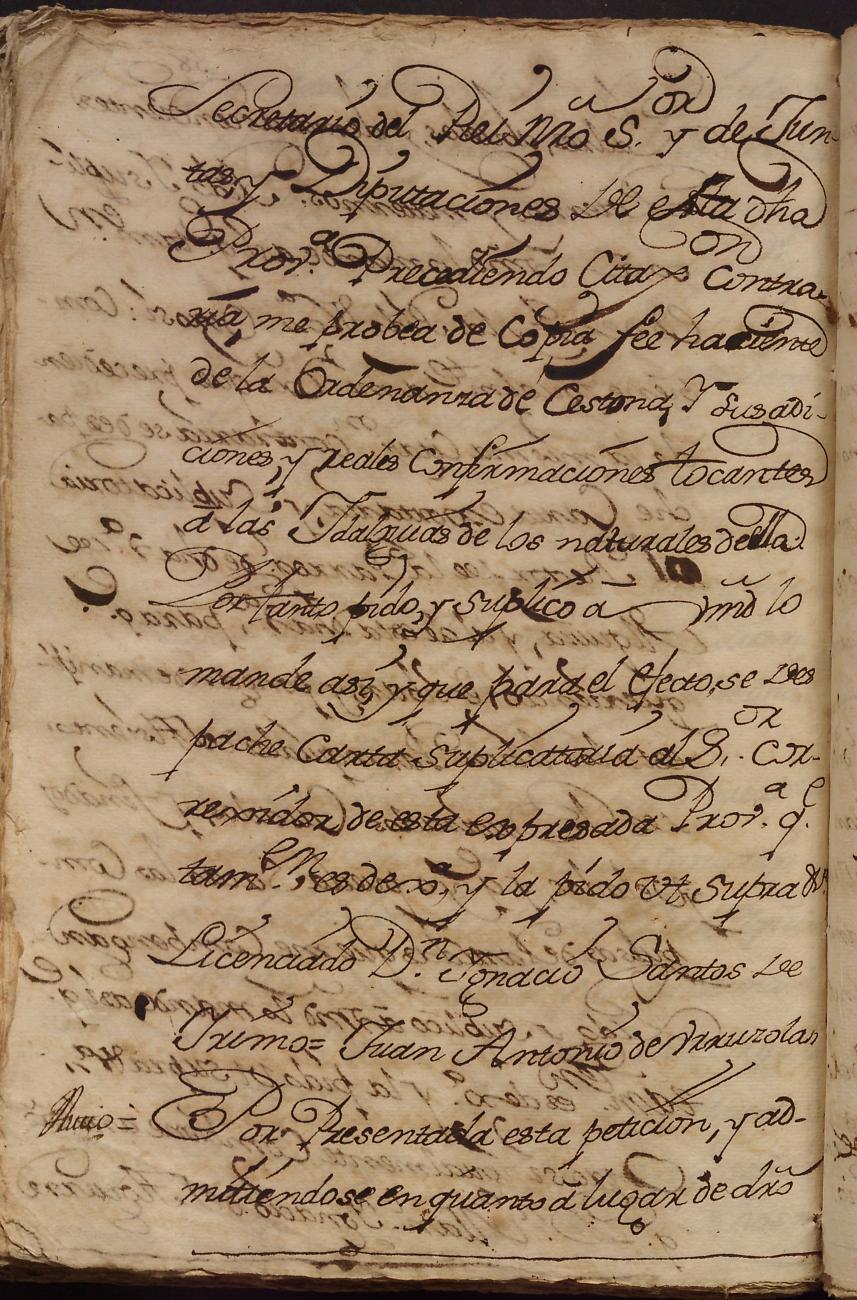 Secretario del Rei Nrō S.or y de Jun-
tas, y Diputaciones de esta dha
Prov.a Precediendo Citaz.on Contra-
ria, me probea de Copia fee haciente
de la Ordenanza de Cestona, Y sus adi-
ciones, y reales Confirmaciones tocantes
á las Idalguias de los naturales de ella.
Por tanto pido, y suplico á vmd lo
mande asi, y que para el efecto, se des
pache Carta Suplicatoria al S.or Cor-
rexidor de esta expresada Prov.a q.e
tam.en, es de x.a, y la pido Vt Supra &.a
Licenciado D.n Ignacio Santos de
Juan Antonio de
Auto = Por Presentada esta peticion, y ad-
mitiendose en quanto á lugar de drō